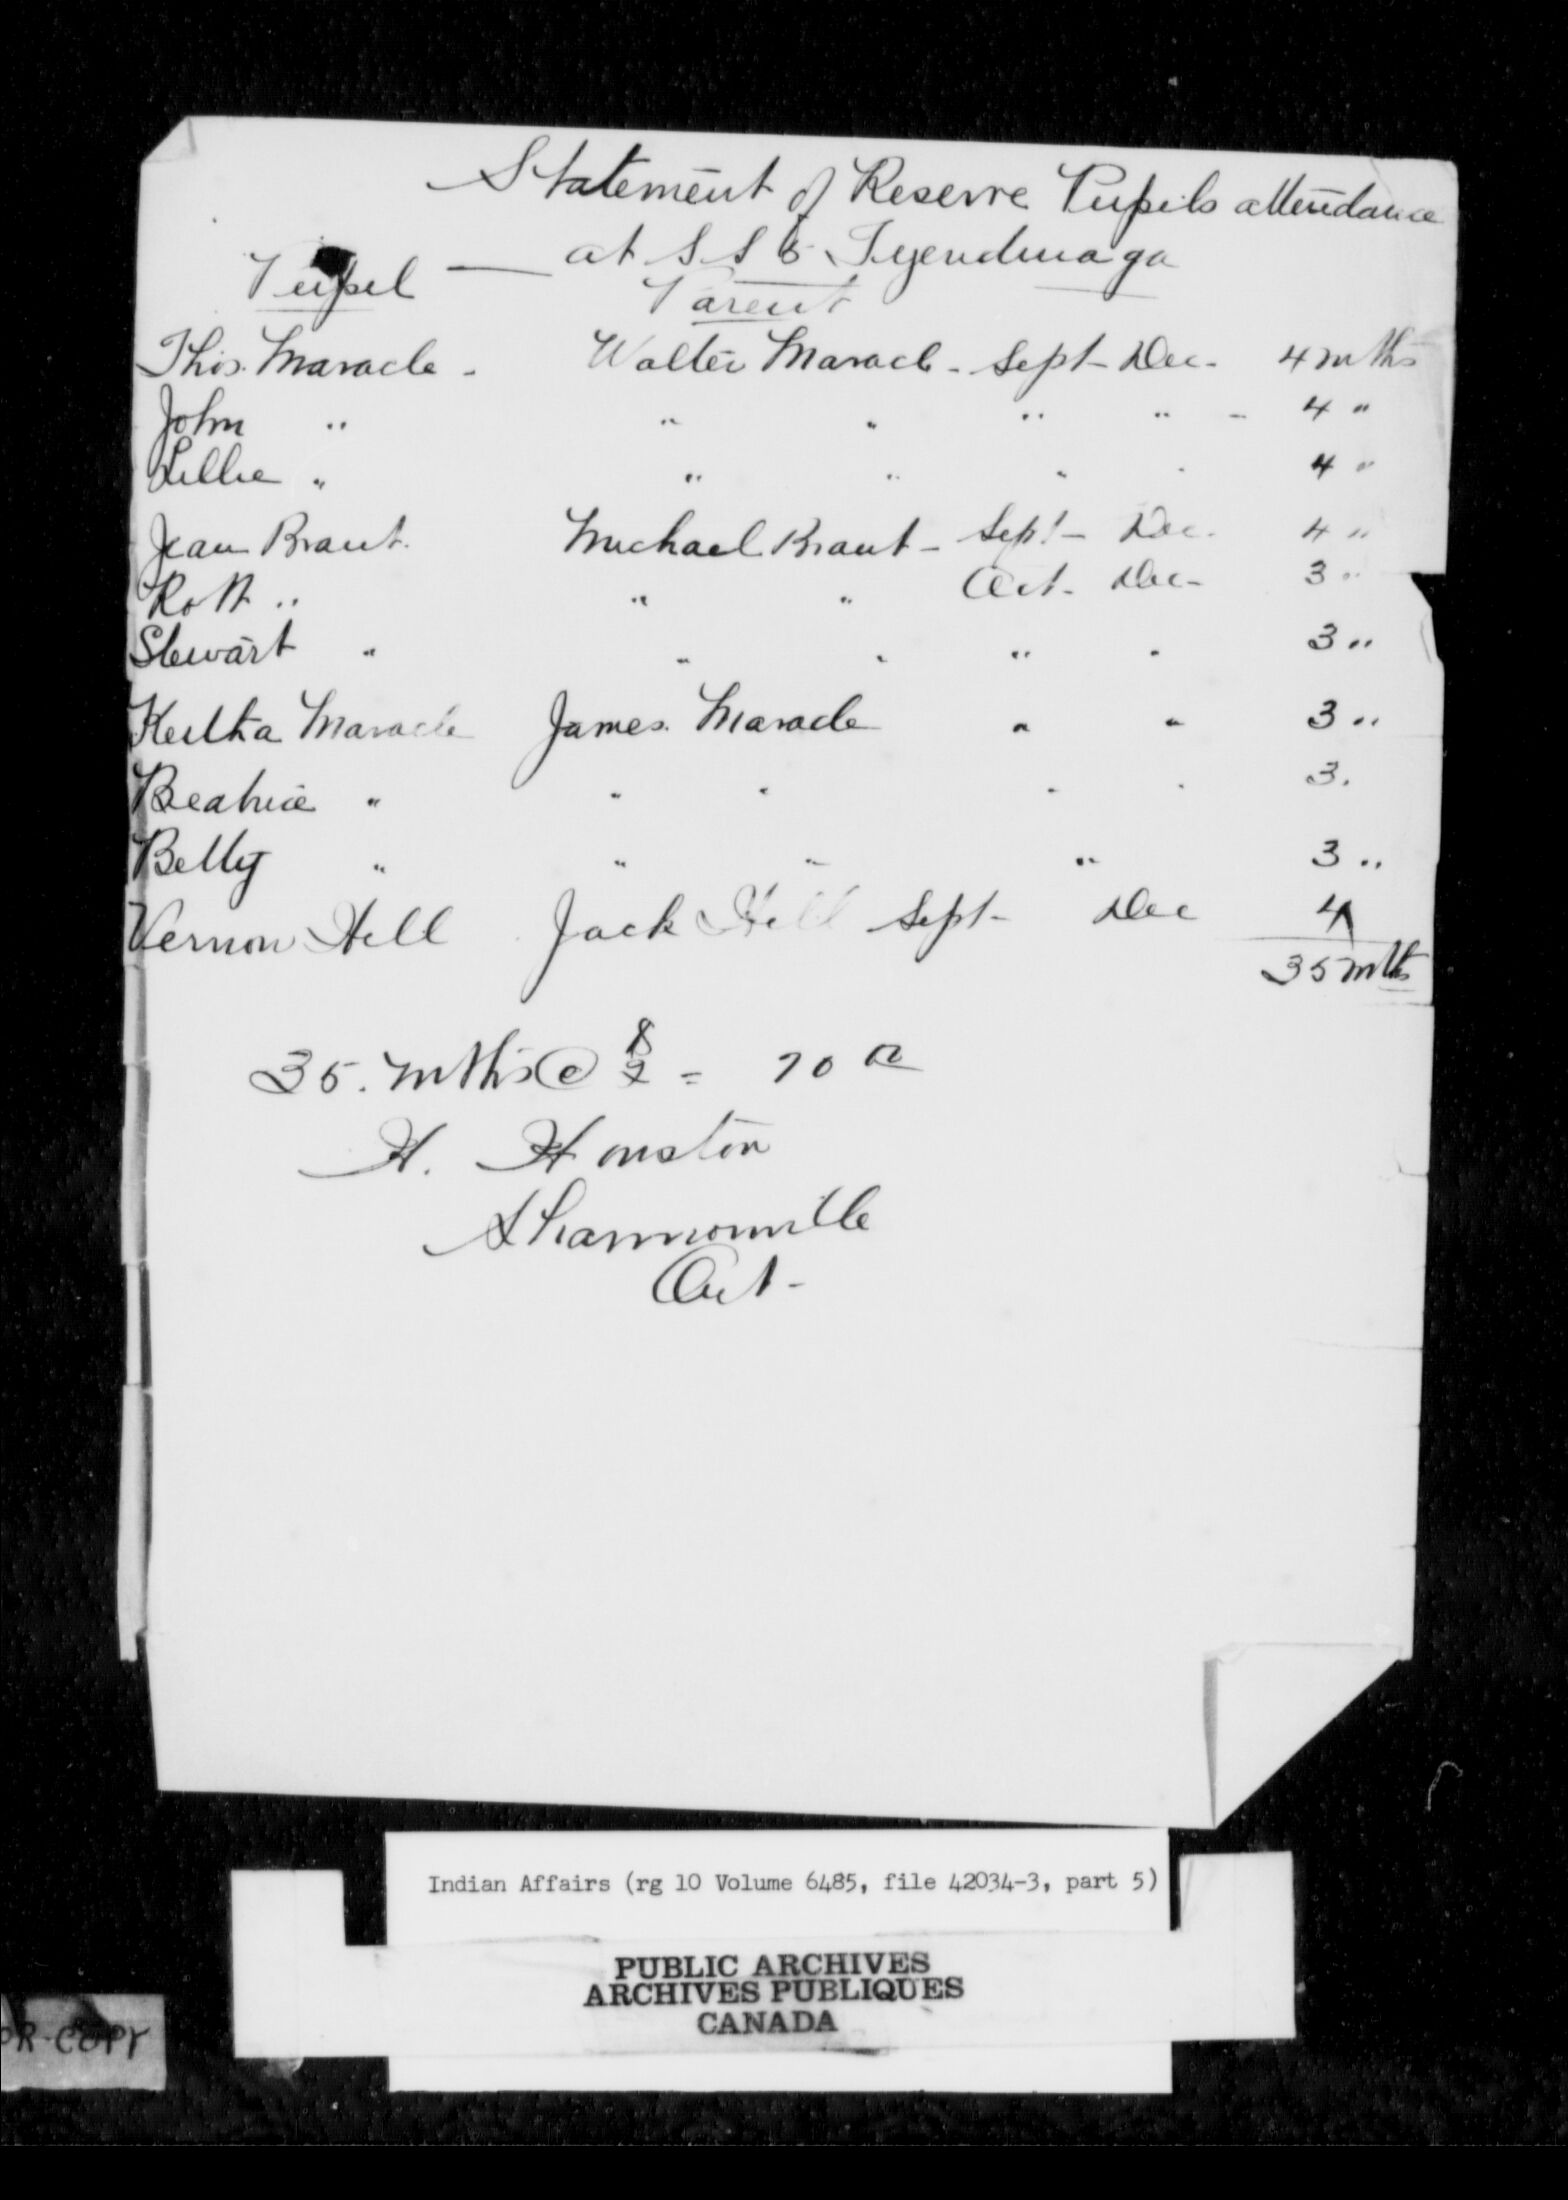 Statement of Reserve Pupils attendance
at S S 5 Tyendinaga
Pupil — Parent
Thos. Maracle - Walter Maracle - Sept - Dec - 4 mths
John " " " " " - 4 "
Lillie " " " " " 4 "
Jean Brant. Michael Brant - Sept - Dec. 4 "
Robt " " " Oct - Dec - 3 "
Stewart " " " " " 3 "
Keitha Maracle James Maracle " " 3 "
Beatrice " " " " " 3 .
Betty " " " " 3 "
Vernon Hill Jack Hill Sept - Dec 4
35 mths
35. mths @ $2 = 70
H. Houston
Shannonville
Ont -
Indian Affairs (rg 10 Volume 6485, file 42034-3, part 5)
PUBLIC ARCHIVES
ARCHIVES PUBLIQUES
CANADA
COPY